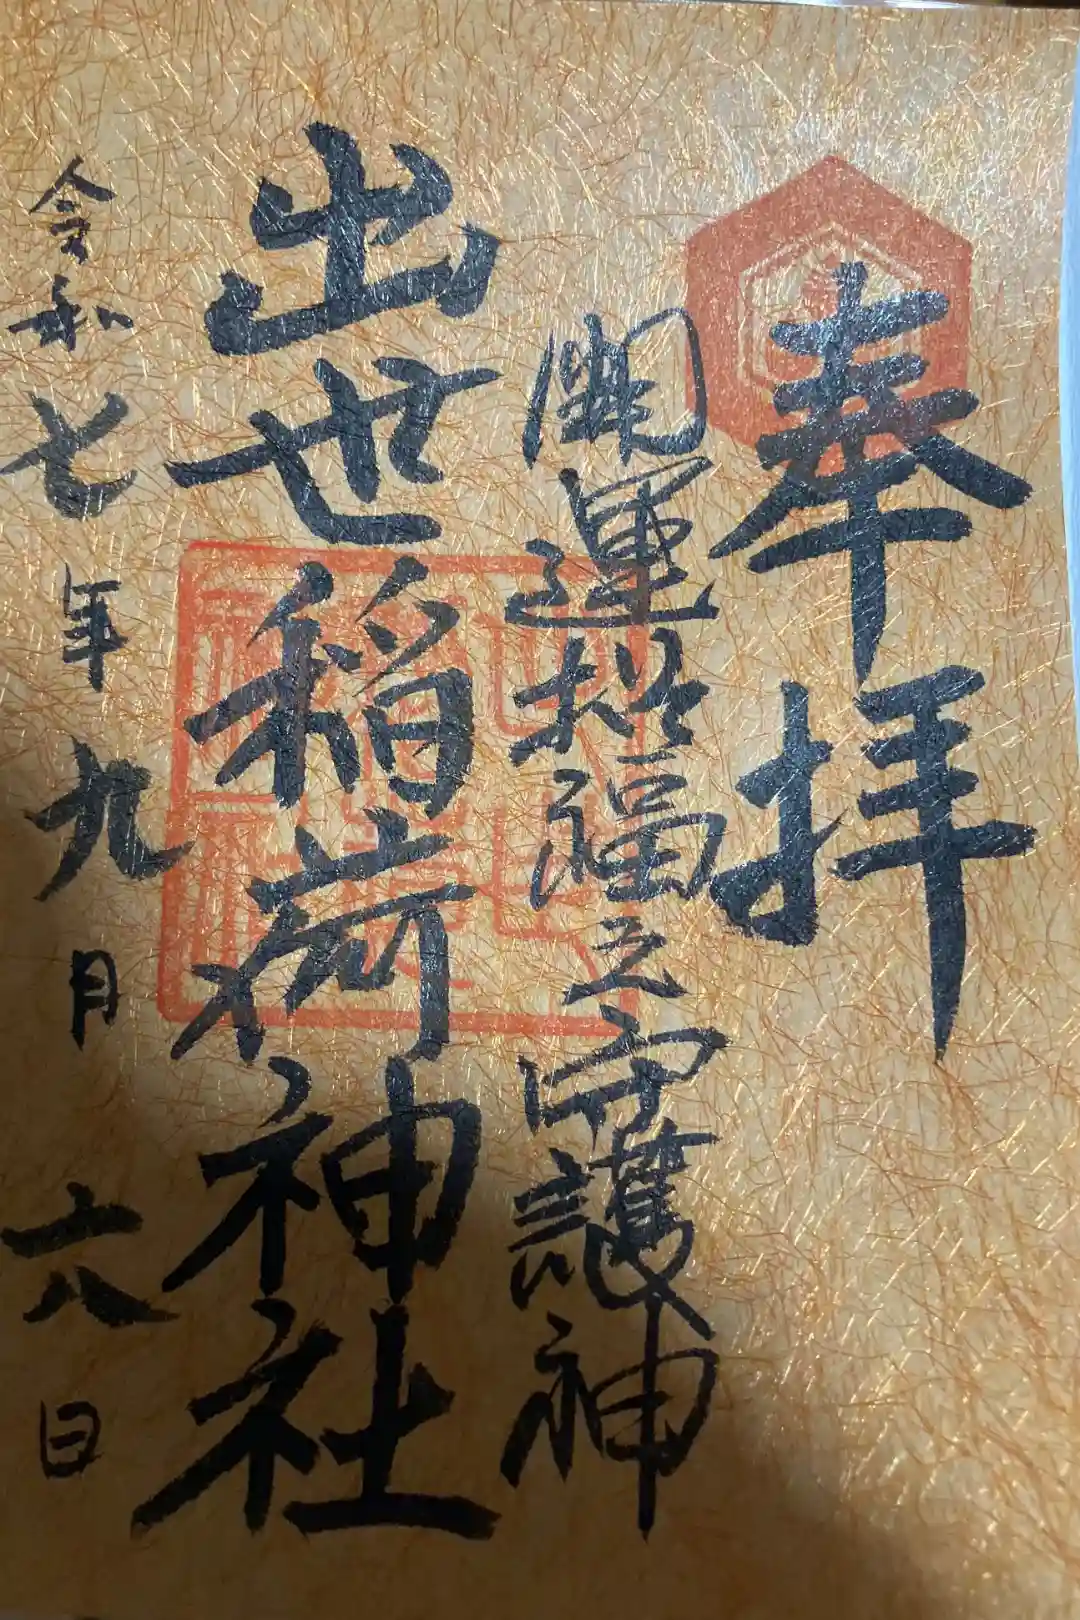 奉拝
開運招福之守護神
出世稲荷神社
令和七年九月六日